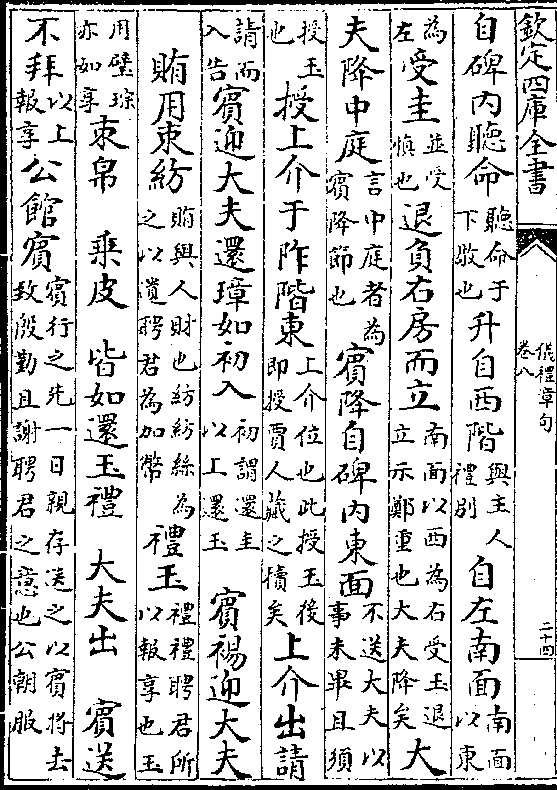 欽定四庫全書
儀禮章句
卷八
二十四
自碑内聽命聽命于下敬也升自西階與主人禮別自左南面南面以東
為左受圭並受慎也退負右房而立南面以西為右受玉退立示鄭重也大夫降矣大
夫降中庭言中庭者為賓降節也賓降自碑内東面不送大夫以事未畢且須
授玉也授上介于阼階東上介位也此授玉後即授賈人藏之櫝矣上介出請
請而入告賓迎大夫還璋如初入初謂還圭以上還玉賓裼迎大夫
賄用束紡賄與人財也紡紡絲為之以遺聘君為加幣禮玉禮禮聘君所以報享也玉
用璧琮亦如享束帛乗皮皆如還玉禮大夫出賓送
不拜以上報享公館賓賓行之先一日親存送之以賓將去致殷勤且謝聘君之意也公朝服